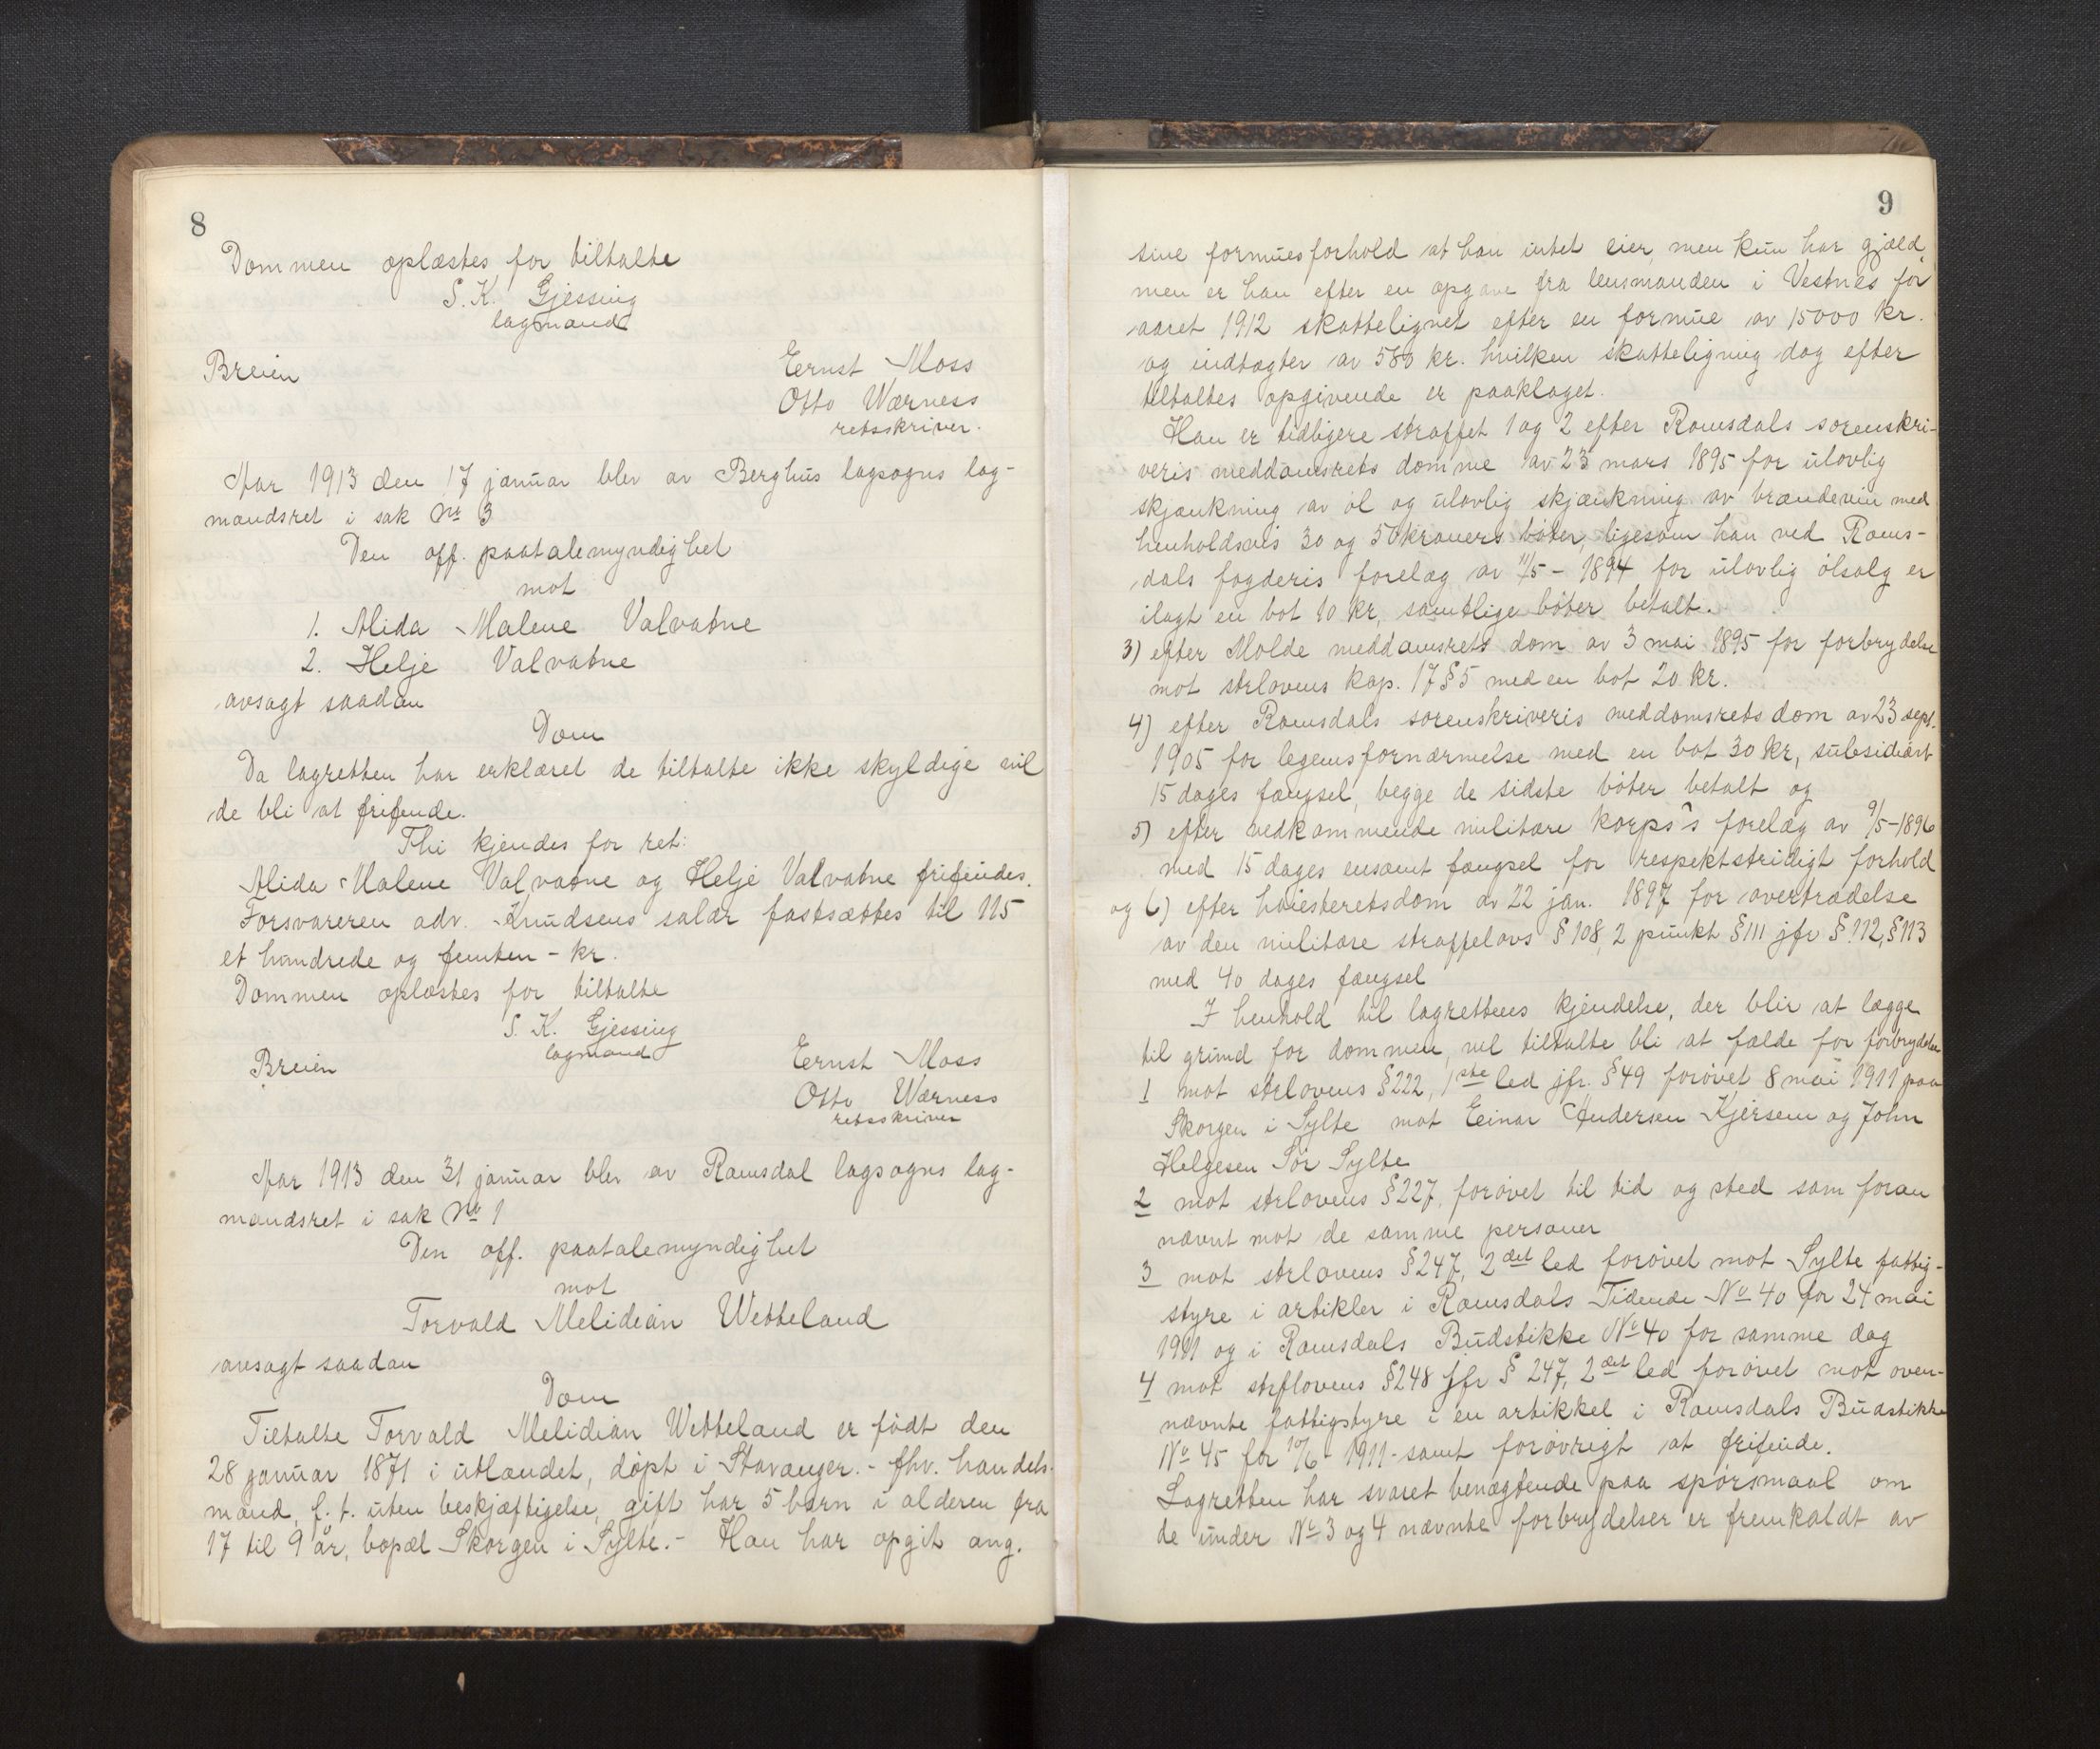 8
Dommen oplæstes for tiltalte
S. K. Gjessing
lagmand
Breien
Ernst Moss
Otto Wærness
retsskriver.
Aar 1913 den 17 januar blev av Berghus lagsogns lag-
mandsret i sak Nr 3
Den off. paatalemyndighet
mot
1. Alida Malene Valvatne
2. Helje Valvatne
avsagt saadan
Dom
Da lagretten har erklæret de tiltalte ikke skyldige vil
de bli at frifinde.
Thi kjendes for ret:
Alida Malene Valvatne og Helje Valvatne frifindes.
Forsvareren adv. Knudsens salær fastsættes til 115
et hundrede og femten - kr.
Dommen oplæstes for tiltalte
S. K. Gjessing
lagmand
Breien
Ernst Moss
Otto Wærness
retsskriver
Aar 1913 den 31 januar blev av Romsdal lagsogns lag-
mandsret i sak No 1
Den off. paatalemyndighet
mot
Torvald Melidian Wetteland
avsagt saadan
Dom
Tiltalte Torvald Melidian Wetteland er født den
28 januar 1871 i utlandet, døpt i Stavanger. - fhv. handels-
mand, f. t. uten beskjæftigelse, gift har 5 barn i alderen fra
17 til 9 år, bopæl Skorgen i Sylte. - Han har opgit ang.
9
sine formuesforhold at han intet eier, men kun har gjæld,
men er han efter en opgave fra lensmanden i Vestnes for
aaret 1912 skattelignet efter en formue av 15000 kr.
og indtægter av 580 kr. hvilken skatteligning dog efter
tiltaltes opgivende er paaklaget.
Han er tidligere straffet 1 og 2 efter Romsdals sorenskri-
veris meddomsrets domme av 23 mars 1895 for ulovlig
skjænkning av øl og ulovlig skjænkning av brændevin med
henholdsvis 30 og 50 kroners bøter, ligesom han ved Roms-
dals fogderis forelæg av 11/5 - 1894 for ulovlig ølsalg er
ilagt en bot 10 kr, samtlige bøter betalt.
3) efter Molde meddomsrets dom av 3 mai 1895 for forbrydelse
mot strlovens kap. 17 § 5 med en bot 20 kr.
4) efter Romsdals sorenskriveris meddomsrets dom av 23 sept.
1905 for legemsfornærmelse med en bot 30 kr, subsidiært
15 dages fængsel, begge de sidste bøter betalt og
5) efter vedkommende militære korps's forelæg av 9/5-1896
med 15 dages ensomt fængsel for respektstridigt forhold
og 6) efter høiesteretsdom av 22 jan. 1897 for overtrædelse
av den militære straffelovs § 108, 2 punkt § 111 jfr § 112, § 113
med 40 dages fængsel
I henhold til lagrettens kjendelse, der blir at lægge
til grund for dommen, vil tiltalte bli at fælde for forbrydelse
1 mot strlovens § 222, 1ste led jfr. § 49 forøvet 8 mai 1911 paa
Skorgen i Sylte mot Einar Andersen Kjersem og John
Helgesen Sør Sylte
2 mot strlovens § 227, forøvet til tid og sted som foran
nævnt mot de samme personer
3 mot strlovens § 247, 2det led forøvet mot Sylte fattig-
styre i artikler i Romsdals Tidende No 40 for 24 mai
1911 og i Romsdals Budstikke No 40 for samme dag
4 mot strflovens § 248 jfr § 247, 2det led forøvet mot oven-
nævnte fattigstyre i en artikkel i Romsdals Budstikke
No 45 for 10/6 1911 - samt forøvrigt at frifinde.
Lagretten har svaret benægtende paa spørsmaal om
de under No 3 og 4 nævnte forbrydelser er fremkaldt av